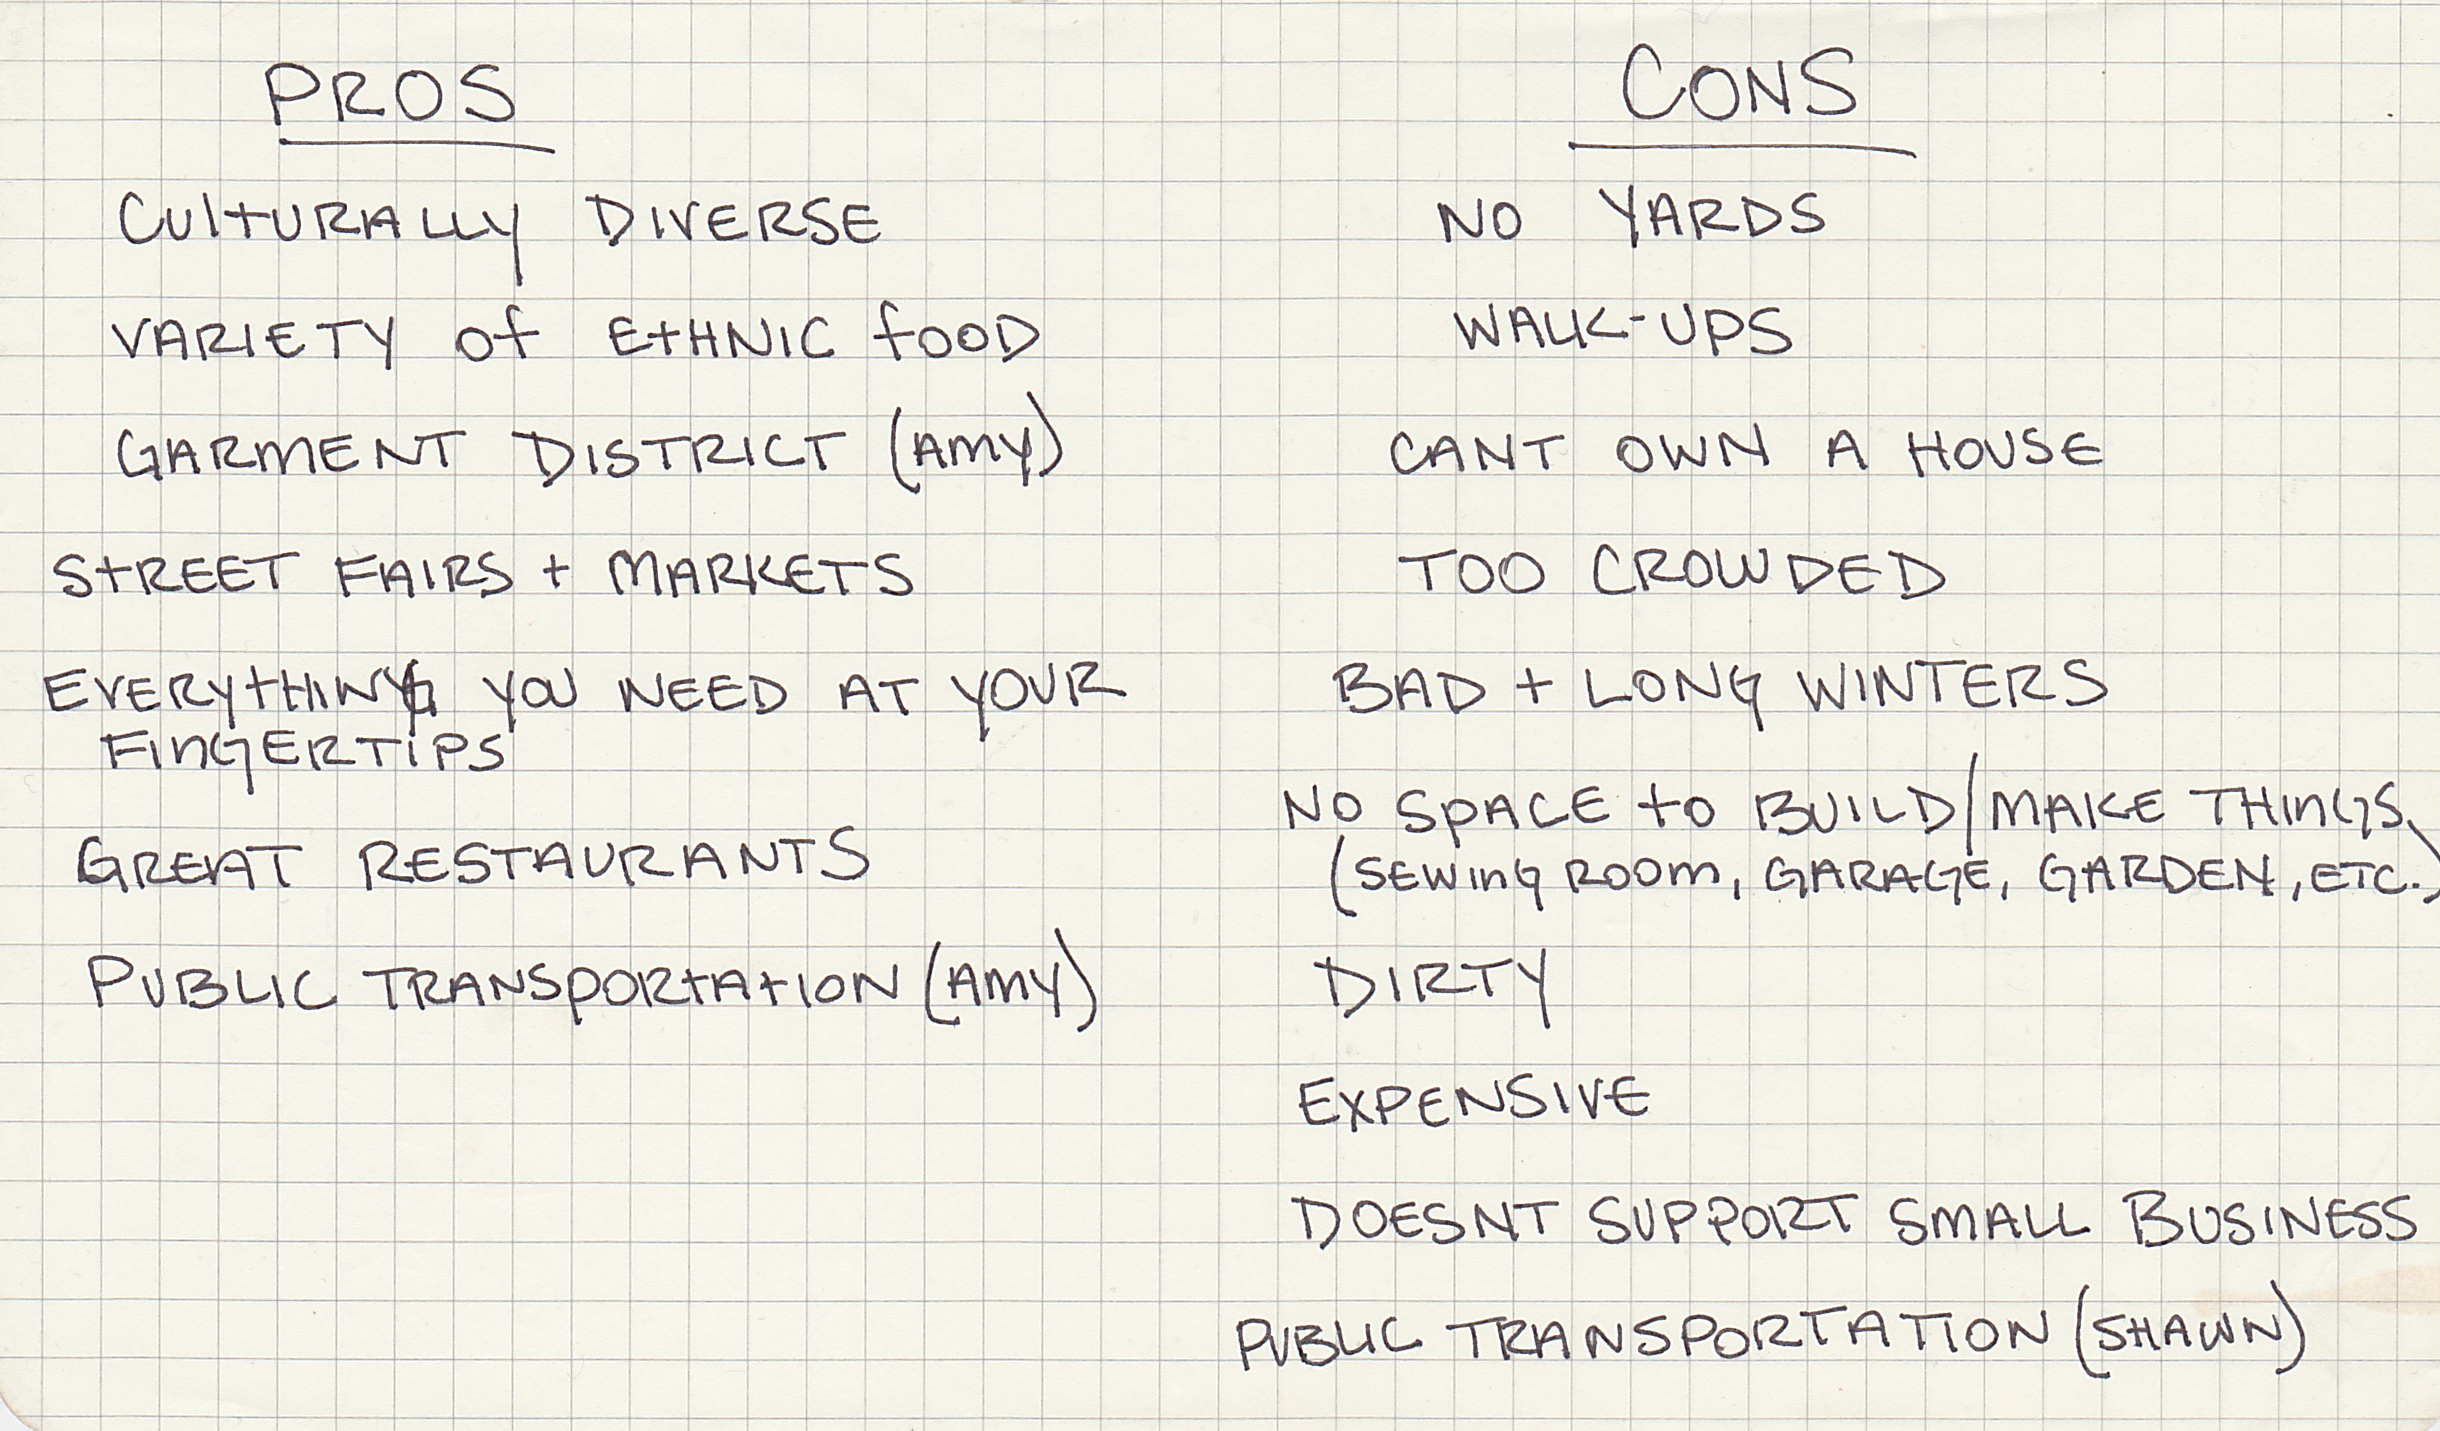 PROS
CULTURALLY DIVERSE
VARIETY OF ETHNIC FOOD
GARMENT DISTRICT (AMY)
STREET FAIRS + MARKETS
EVERYTHING YOU NEED AT YOUR
FINGERTIPS
GREAT RESTAURANTS
PUBLIC TRANSPORTATION (AMY)
CONS
NO YARDS
WALK-UPS
CANT OWN A HOUSE
TOO CROWDED
BAD + LONG WINTERS
NO SPACE TO BUILD/MAKE THINGS
(SEWING ROOM, GARAGE, GARDEN, ETC.)
DIRTY
EXPENSIVE
DOESNT SUPPORT SMALL BUSINESS
PUBLIC TRANSPORTATION (SHAWN)